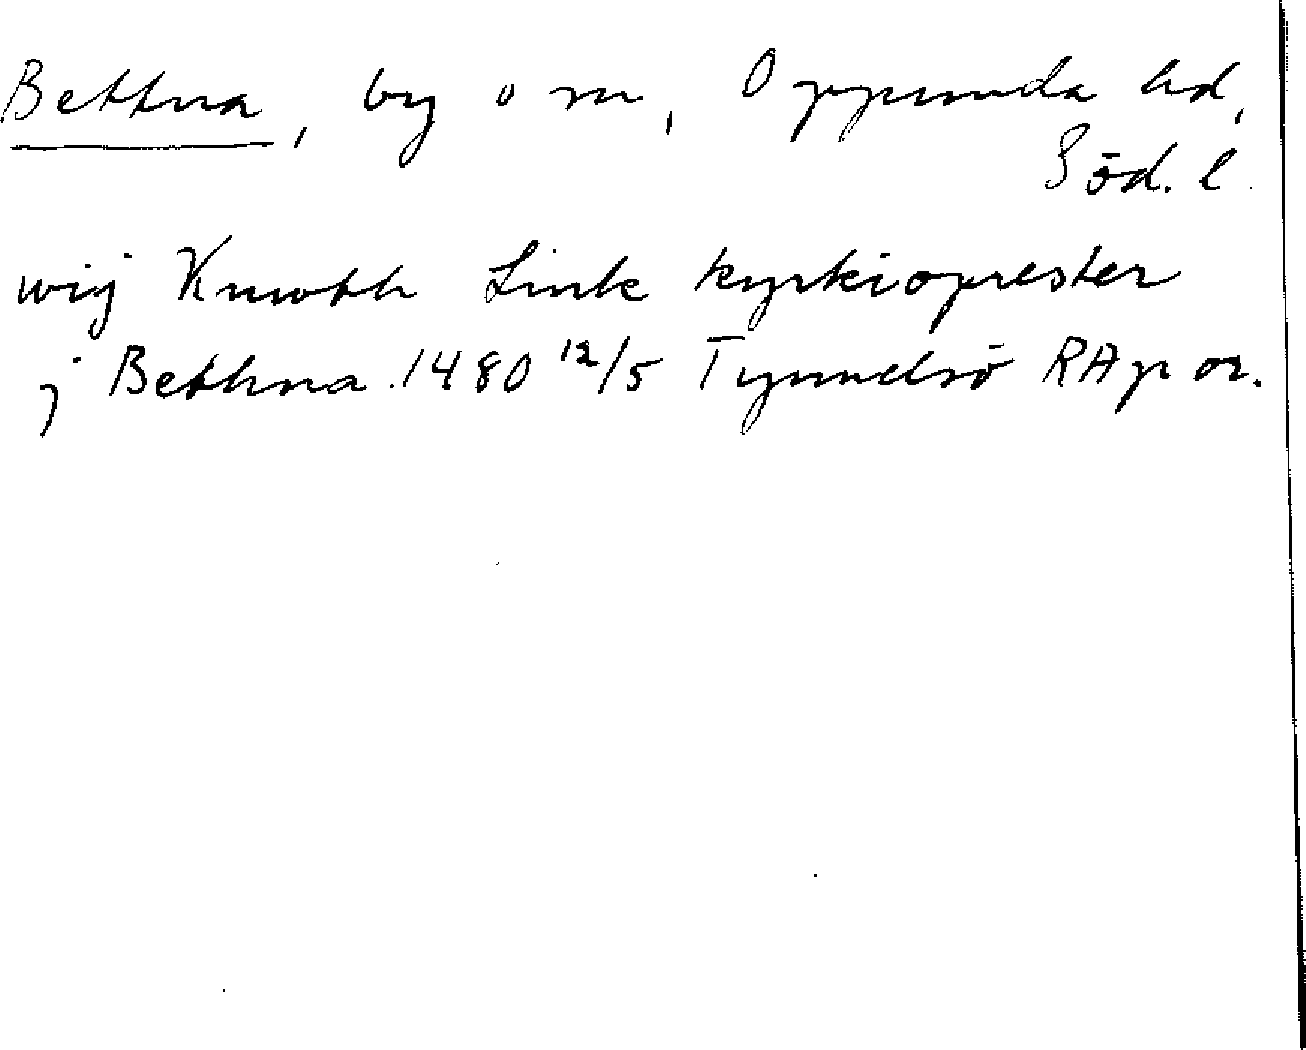 Bettna, by o sn, Oppunda hd,
Söd. l.
wij Knwth Link kyrkioprester
j Bethna. 1480 12/5 Tynnelsö RAp or.